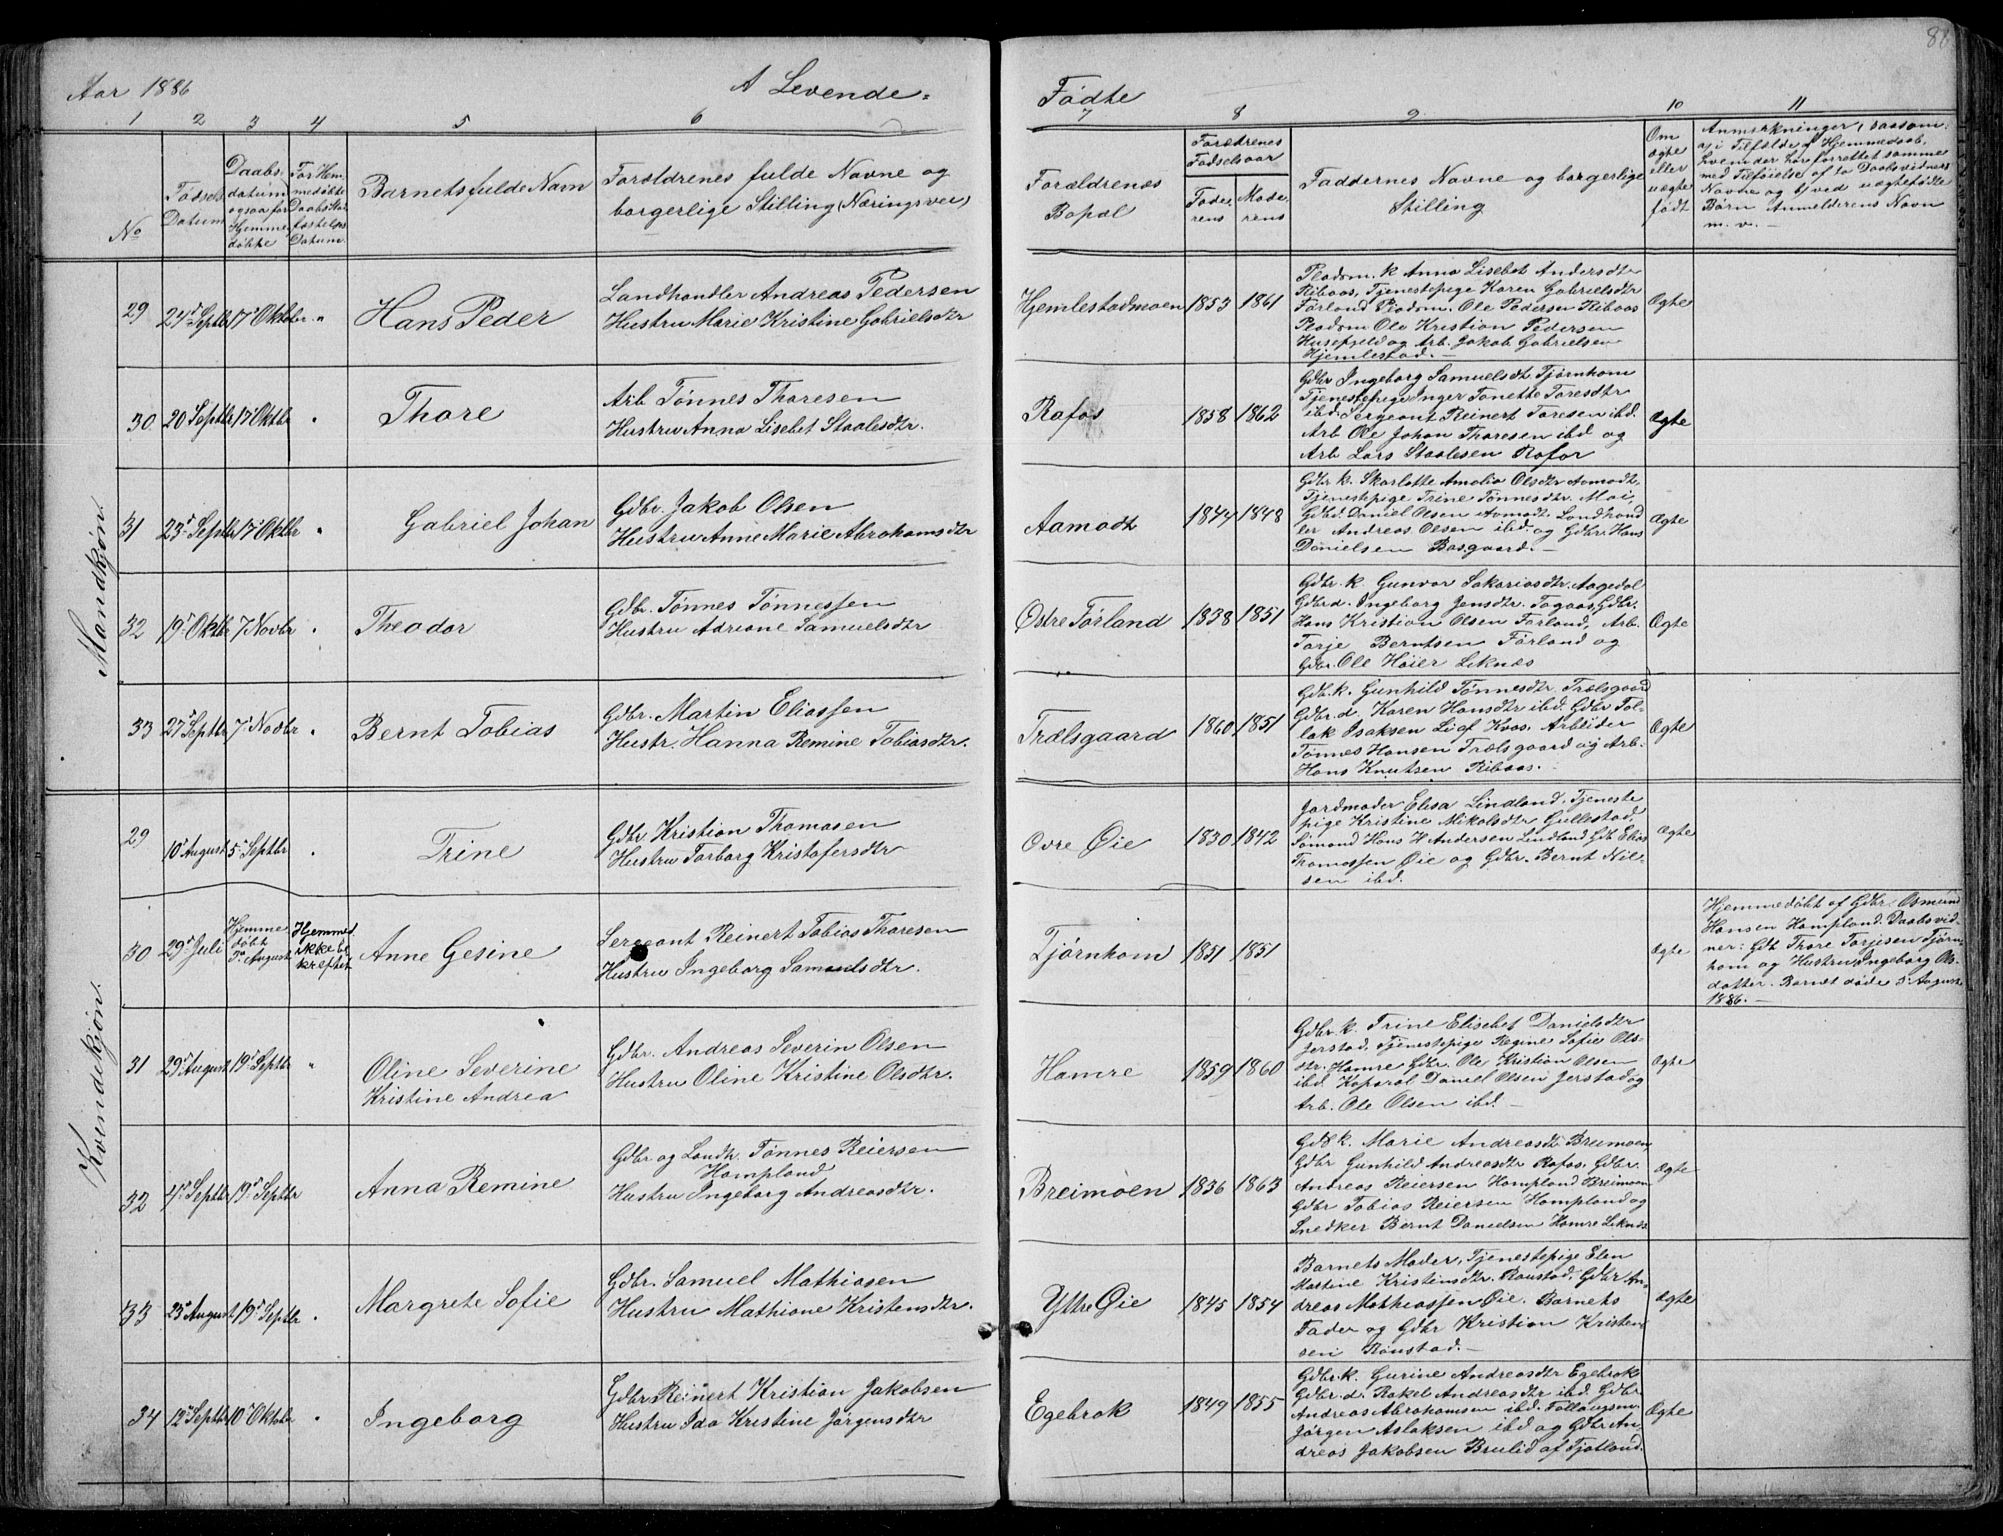 Aar 1886
A Levende=
Fødte
1 2 3 4 5 6 7 8 9 10 11
No
Fødsels
Datum
Daabs-
datum
ogsaa for
Hjemme
døbte
For Hjem-
medøbte
Daabs
Datum.
Barnets fulde Navn
Forældrenes fulde Navne og
borgerlige Stilling (Næringsvei)
Forældrenes
Bopæl
Forældrenes
Fødselsaar
Fade-
rens
Mode-
rens
Faddernes Navne og borgerlige
Stilling
Om
ægte
eller
uægte
født
Anmærkninger, saasom
a, i Tilfælde af Hjemmedaab,
hvem der har forrettet samme
med Tilføielse af to Daabsvidners
Navne og b) ved uægtefødte
Børn Anmelderens Navn
m. v. -
Mandkjøn.
29 24d Septbr 17d Oktober "
Hans Peder
Landhandler Andreas Pedersen
Hustru Marie Kristine Gabrielsdtr
Hjemlestadmoen 1853 1861
Pladsm. k Anna Lisebet Andersdtr
Ribaas, Tjenestepige Karen Gabrielsdtr
Førland Pladsm. Ole Pedersen Ribaas
Pladsm Ole Kristian Pedersen
Husefjeld og Arb. Jakob Gabrielsen
Hjemlestad. -
Ægte
30 20 Septbr 17d Oktbr "
Thore
Arb Tønnes Thoresen
Hustru Anna Lisebet Staalesdtr.
Rafos 1858 1862
Gdbr Ingeborg Samuelsdtr Tjørnhom
Tjenestepige Inger Tonette Toresdtr
ibd. Sergeant Reinert Toresen ibd.
Arb Ole Johan Thoresen ibd og
Arb Lars Staalesen Rafos
Ægte
31 23d Septbr 17d Oktbr "
Gabriel Johan
Gdbr. Jakob Olsen
Hustru Anne Marie Abrahamsdtr
Aamodt 1844 1848
Gdbr k. Skarlotte Amalia Olsdtr Aamodt,
Tjenestepige Trine Tønnesdtr. Moi,
Gdbr. Daniel Olsen Aamodt. Landhand
ler Andreas Olsen ibd. og Gdbr. Hans
Danielsen Bosgaard. -
Ægte
32 19d Oktbr 7 Novbr "
Theodor
Gdbr. Tønnes Tønnessen
Hustru Adriane Samuelsdtr
Østre Førland 1838 1851
Gdbr. k. Gunvor Sakariasdtr. Aagedal
Gdbr d. Ingeborg Jensdtr. Tagaas, Gdbr.
Hans Kristian Olsen Førland, Arb.
Tarje Berntsen Førland og
Gdbr. Ole Høier Liknæs
Ægte
33 27d Septbr 7d Novbr "
Bernt Tobias
Gdbr. Martin Eliassen
Hustr. Hanna Remine Tobiasdtr.
Trælsgaard 1860 1851
Gdb. k. Gunhild Tønnesdtr. Trælsgaard
Gdbr. d. Karen Hansdtr ibd. Gdbr Tol-
lak Isaksen Li af Kvas, Arbeider
Tønnes Hansen Trælsgaard og Arb.
Hans Knutsen Ribaas.
Ægte
Kvindekjøn.
29 10d August 5d Septbr "
Trine
Gdbr Kristian Thomasen
Hustru Torborg Kristofersdtr
Øvre Øie 1830 1842
Jordmoder Elisa Lindland. Tjeneste
pige Kristine Mikalsdtr Gullestad,
Sømand Hans H Andersen Lindland Gdb Elias
Thomassen Øie og Gdbr. Bernt Nil-
sen ibd.
Ægte
30 29d Juli
Hjemme
døbt
3d August
Hjemmed.
ikke be
kreftet
Anne Gesine
Sergeant Reinert Tobias Thoresen
Hustru Ingeborg Samuelsdtr.
Tjørnhom 1851 1851
Ægte
Hjemmedøbt af Gdbr. Osmund
Hansen Hompland Daabsvid
ner: Gdb Thore Torjesen Tjørn-
hom og Hustru Ingeborg Ols-
datter. Barnet døde 5 August
1886. -
31 29d August 19d Septbr "
Oline Severine
Kristine Andrea
Gdbr. Andreas Severin Olsen
Hustru Oline Kristine Olsdtr.
Hamre 1859 1860
Gdbr k. Trine Elisebet Danielsdtr
Jerstad, Tjenestepige Regine Sofie Ols-
dtr. Hamre Gdbr. Ole Kristian Olsen
ibd. Kaparal Daniel Olsen Jerstad og
Arb. Ole Olsen ibd. -
Ægte
32 4d Septbr 19d Septbr
Anna Remine
Gdbr og Landh. Tønnes Reiersen
Hompland
Hustru Ingeborg Andreasdtr.
Breimoen 1836 1863
Gdb k. Marie Andreasdtr Breimoen,
Gdbr Gunhild Andreasdtr Rafos, Gdbr.
Andreas Reiersen Hompland Breimoen
Gdbr Tobias Reiersen Hompland og
Snedker Bernt Danielsen Hamre Liknes
Ægte
33 23d August 19d Septbr "
Margrete Sofie
Gdbr. Samuel Mathiasen
Hustru Mathiane Kristensdtr.
Yttre Øie 1845 1854
Barnets Moder, Tjenestepige Elen
Martine Kristensdtr. Raustad, Gdbr An-
dreas Mathiassen Øie. Barnets
Fader og Gdbr Kristian Kristen
sen Raustad. -
Ægte
34 12d Septbr 10d Oktobr "
Ingeborg
Gdbr Reinert Kristian Jakobsen
Hustru Ida Kristine Jørgensdtr
Egebrok 1849 1855
Gdbr. k. Gurine Andreasdtr Egebrok
Gdbr. d. Rakel Andreasdtr ibd. Gdbr
Andreas Abrahamsen ibd.
Jørgen Aslaksen ibd og Gdbr An-
dreas Jakobsen Brulid af Fjotland.
Ægte